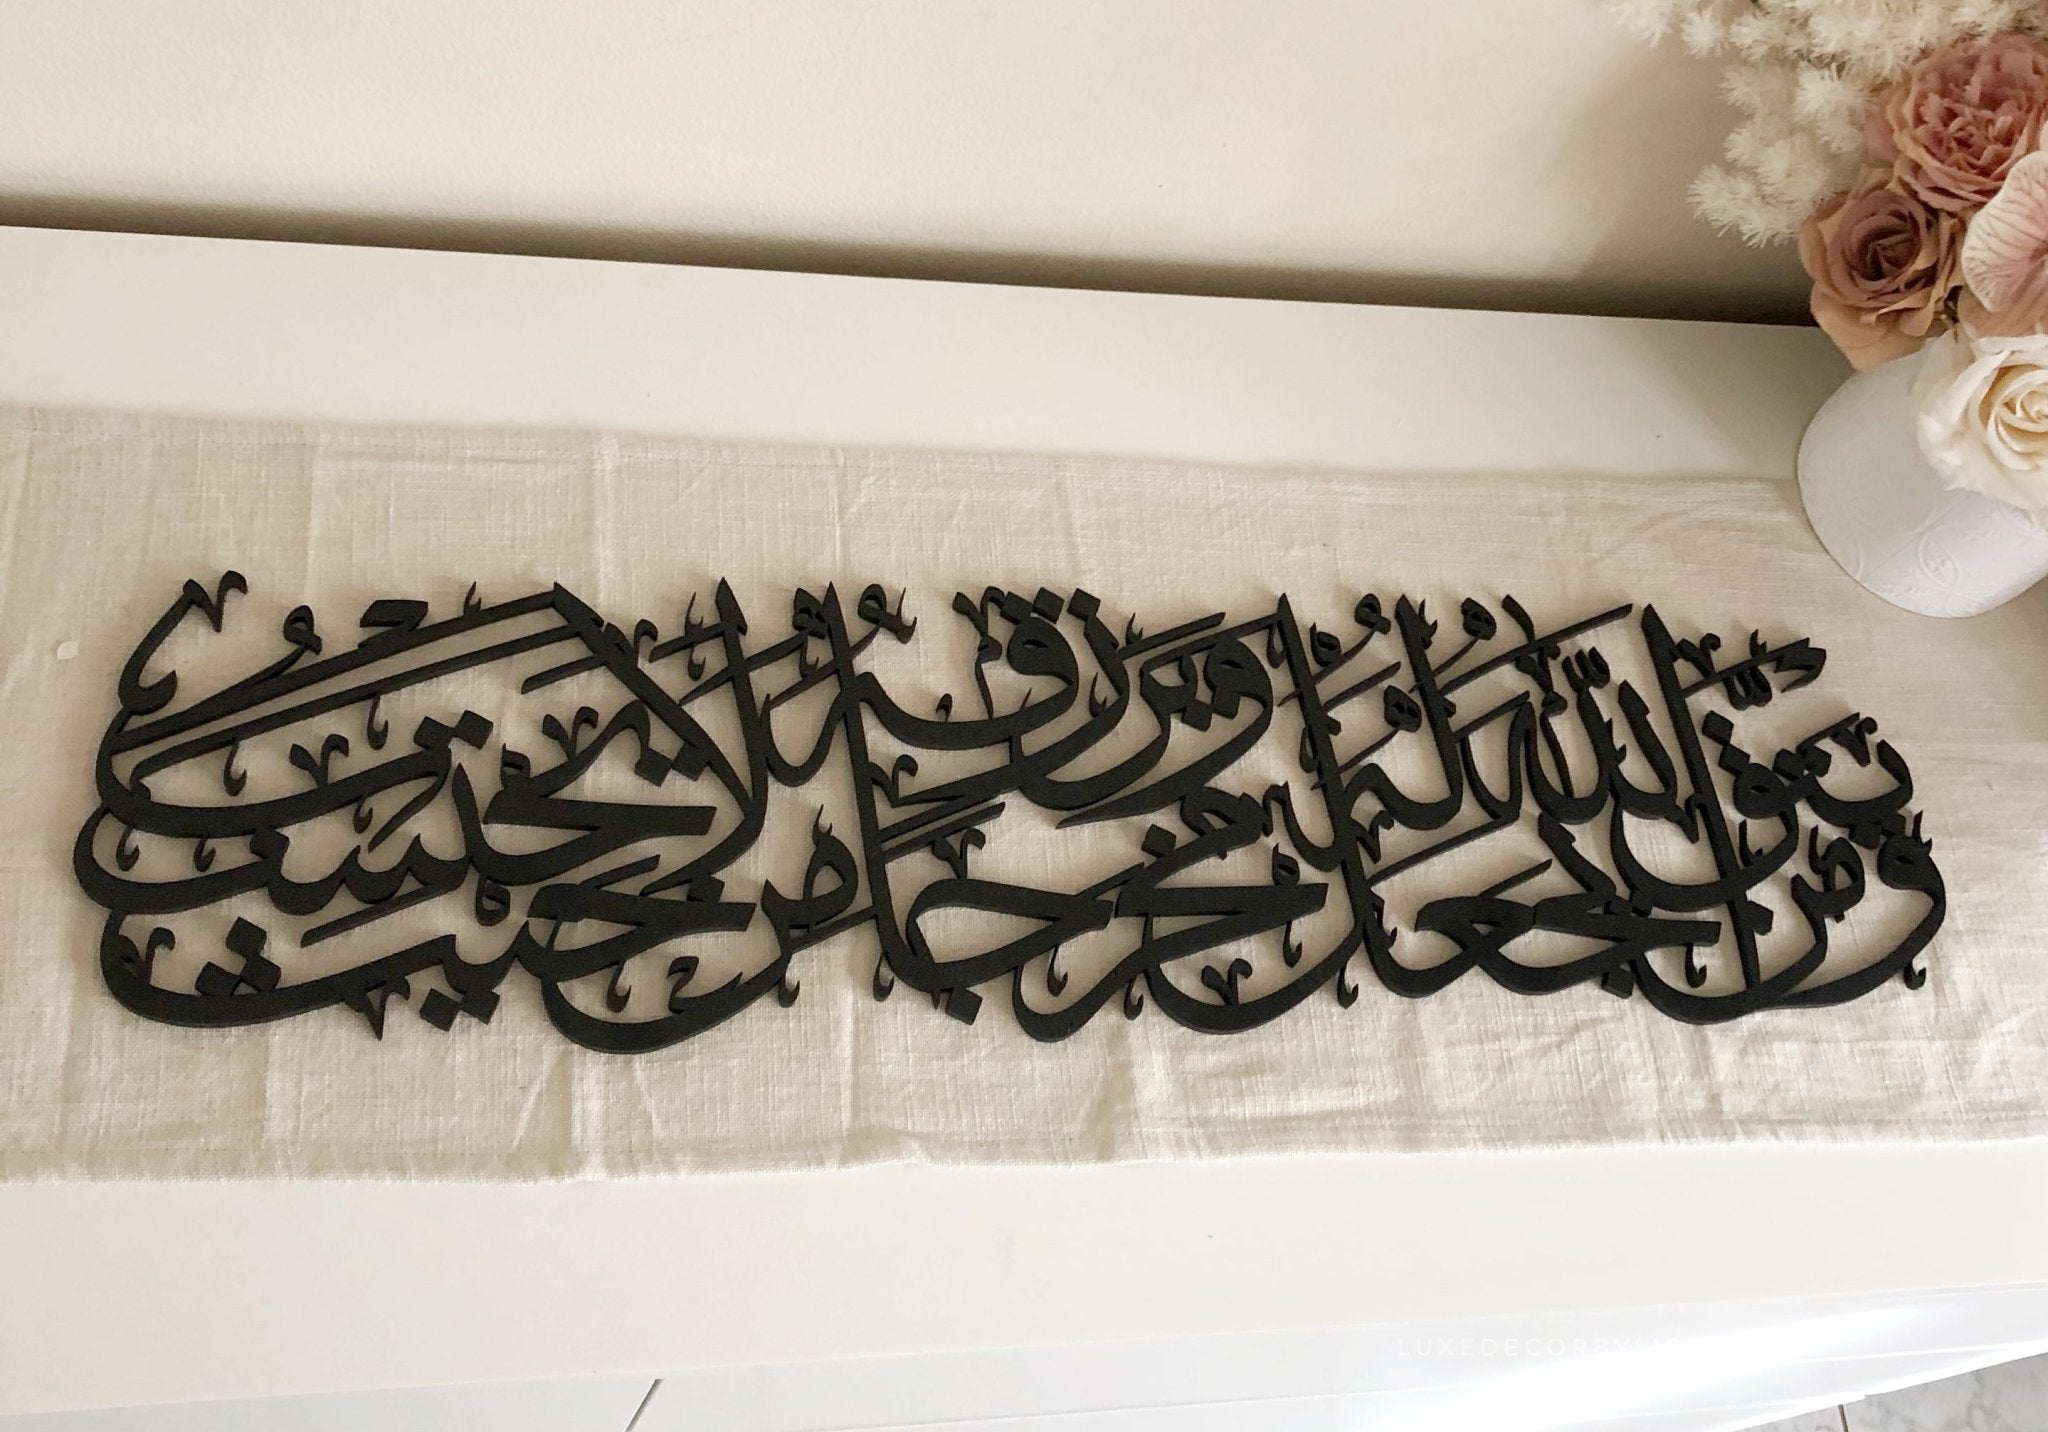 ومن يتق الله يجعل له مخرجا ويرزقه من حيث لا يحتسب
LUXEDECORBY